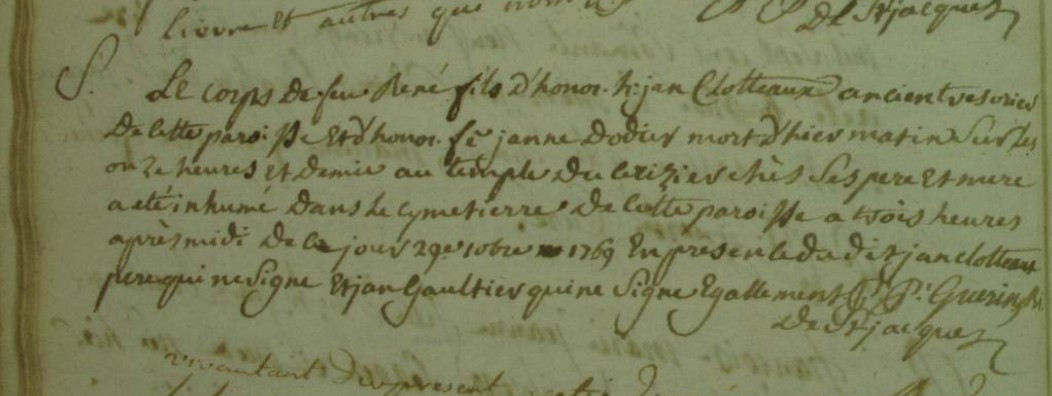 Livre et autres qui
de St jacques
S. Le corps de feu René fils d'honor. h. jan Clotteaux ancient tresorier
de cette paroisse Et d'honor. fe janne Dodier mort d'hier matin sur les
onze heures et demie au temple du cerizier chès ses pere Et mere
a eté inhumé dans le cymetierre de cette paroisse a trois heures
après midi de ce jour 29e 10bre 1769 En presence du dit jan clotteaux
pere qui ne signe Et jan Gaultier qui ne signe Egallement P. Guerin
de St jacques